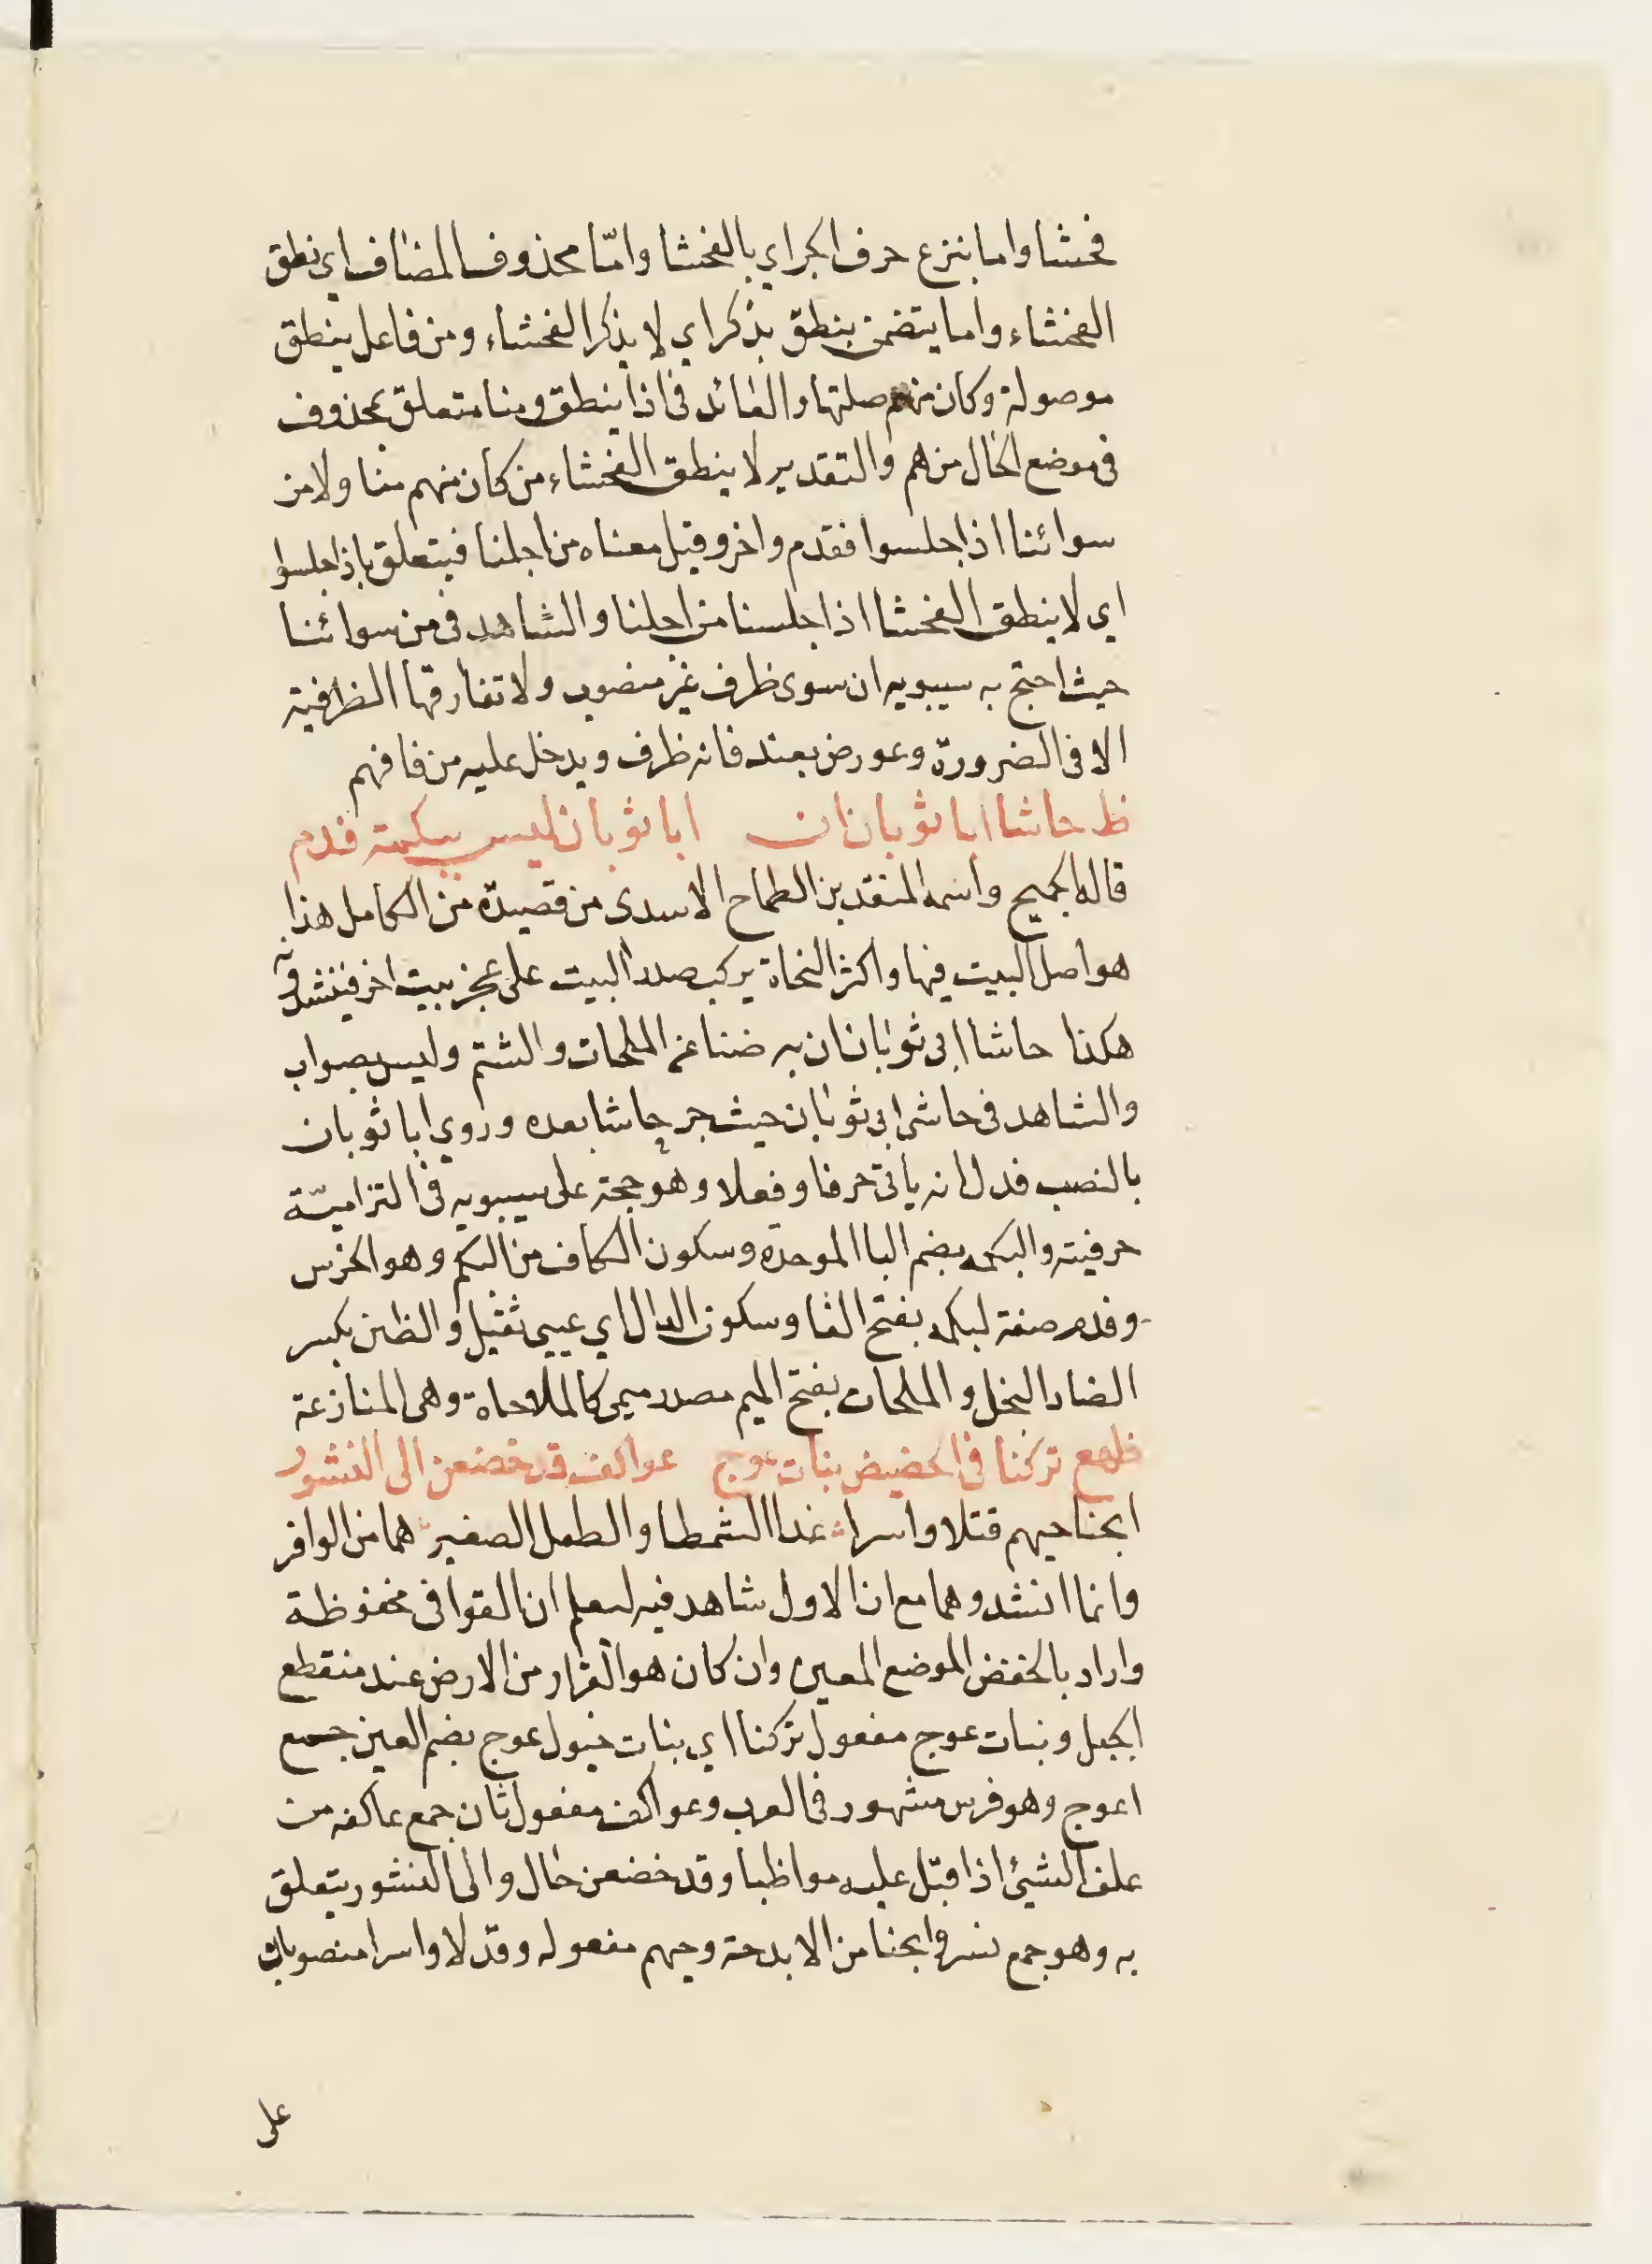 فحشا واما بنزع حرف الجر اي بالفحشا وامّا محذوف المضاف اي نطق
الفحشاء واما يتضمن ينطق يذكر اي لا يذكر الفحشاء ومن فاعل ينطق
موصولة وكان منهم صلتها والعائد في اذا ينطق ومنا متعلق بمحذوف
في موضع الحال من هم والتقدير لا ينطق الفحشاء من كان منهم منا ولا من
سوائنا اذا جلسوا فقدم واخر وقيل معناه من اجلنا فيتعلق باذ جلسوا
اي لا ينطق الفحشا اذا جلسنا من اجلنا والشاهد في من سوائنا
حيث احتج به سيبويه ان سوى ظرف غير منصوب ولا تفارقها الظرفية
الا في الضرورة وعورض بعند فانه ظرف ويدخل عليه من فافهم
ظ حاشا ابا ثوبان ان ابا ثوبان ليس ببكمة فدم
قاله الجميح واسمه المنقد بن الطماح الاسدى من قصيدة من الكامل هذا
هو اصل البيت فيها واكثر النحاة يركب صدر البيت على عجز بيت اخر فينشدونه
هكذا حاشا ابى ثوبان ان به ضنا عن الملحات والشتم وليس بصواب
والشاهد في حاشى ابى ثوبان حيث جر حاشا بعده وروي ابا ثوبان
بالنصب فدل انه ياتى حرفا وفعلا وهو حجة على سيبويه في التزاميّة
حرفيته والبكمه بضم البا الموحدة وسكون الكاف من البكم وهو الخرس
وفدم صفة لبكمه بفتح الفا وسكون الدال اي عيي ثقيل والظن بكسر
الضاد البخل والملحات بفتح الميم مصدر ميمى كالملاحاة وهى المنازعة
ظهع تركنا في الحضيض بنات عوج عواكف قد خضعن الى النشور
ابحنا حيهم قتلا واسرا عدا الشمطا والطفل الصغير هما من الوافر
وانما انشدوهما مع ان الاول شاهد فيه ليعلم ان القوافى مخفوظة
واراد بالخفض الموضع المعين وان كان هو القرار من الارض عند منقطع
الجبل وبنات عوج مفعول تركنا اي بنات خيول عوج بضم العين جمع
اعوج وهو فرس مشهور في العرب وعواكف مفعول ثان جمع عاكفه من
علف الشيئ اذا قبّل عليه مواظبا وقد خضعن حال والى النشور يتعلق
به وهو جمع نسر وابحنا من الابدحة وحيهم مفعوله وقتلا واسرا منصوبان
على